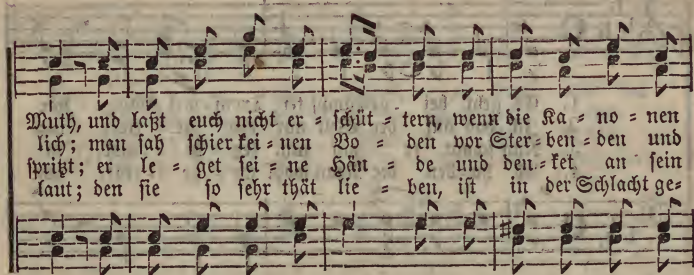 Muth, und laßt euch nicht er = schüt = tern, wenn die Ka = no = nen
lich; man sah schier kei = nen Bo = den vor Ster = ben = den und
spritzt; er le = get sei = ne Hän = de und den = ket an sein
laut; den sie so sehr thät lie = ben, ist in der Schlacht ge=